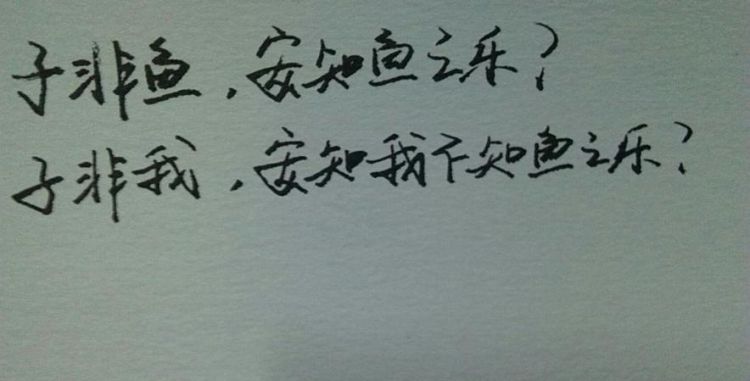 子非鱼，安知鱼之乐？
子非我，安知我不知鱼之乐？